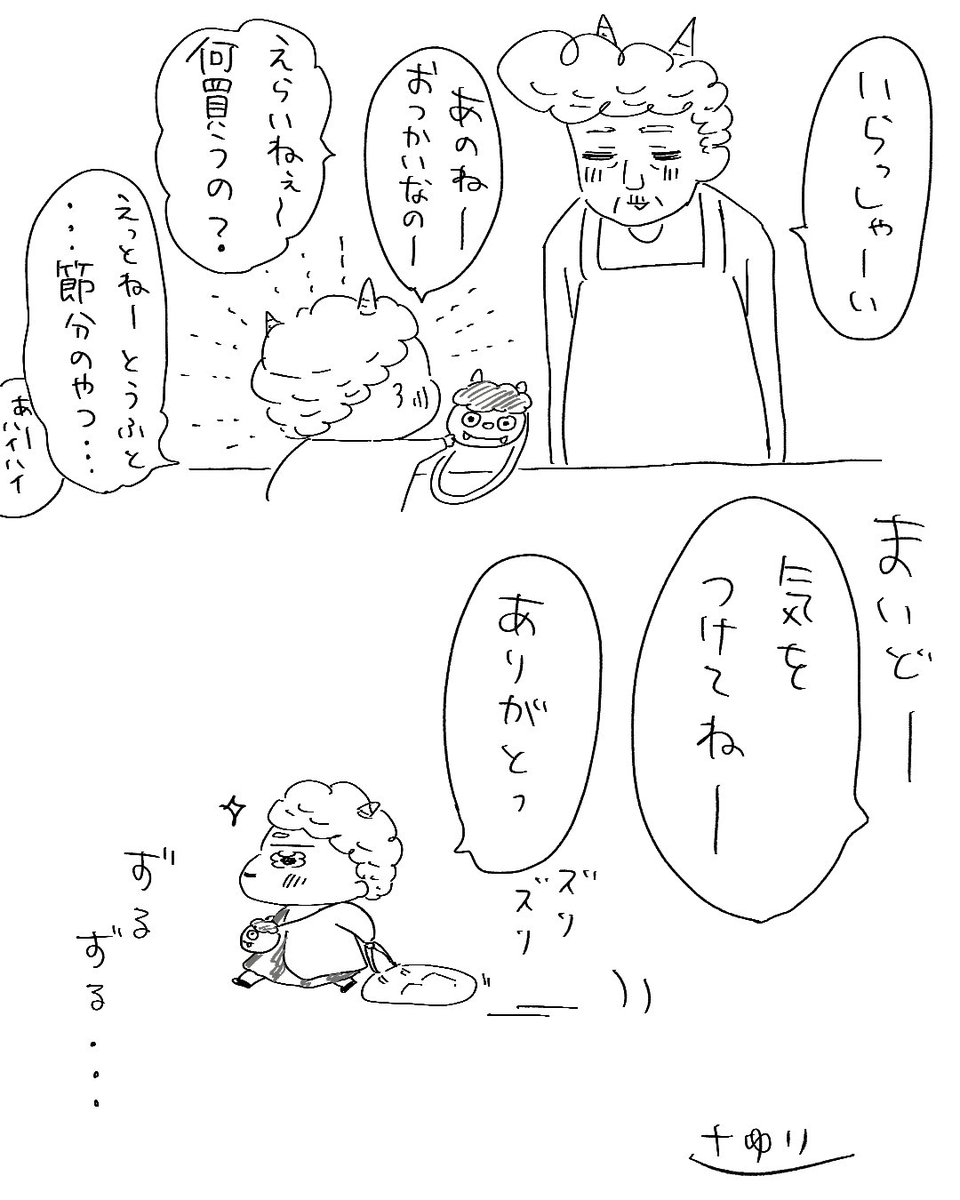 いらっしゃーい
あのねー
おっかいなのー
えらいねぇ〜
何買うの？
えっとねー とうふと
・・・節分のやつ・・・
あーハイハイ
まいどー
気を
つけてねー
ありがとっ
ズリ
ズリ
ずる
ずる・・・